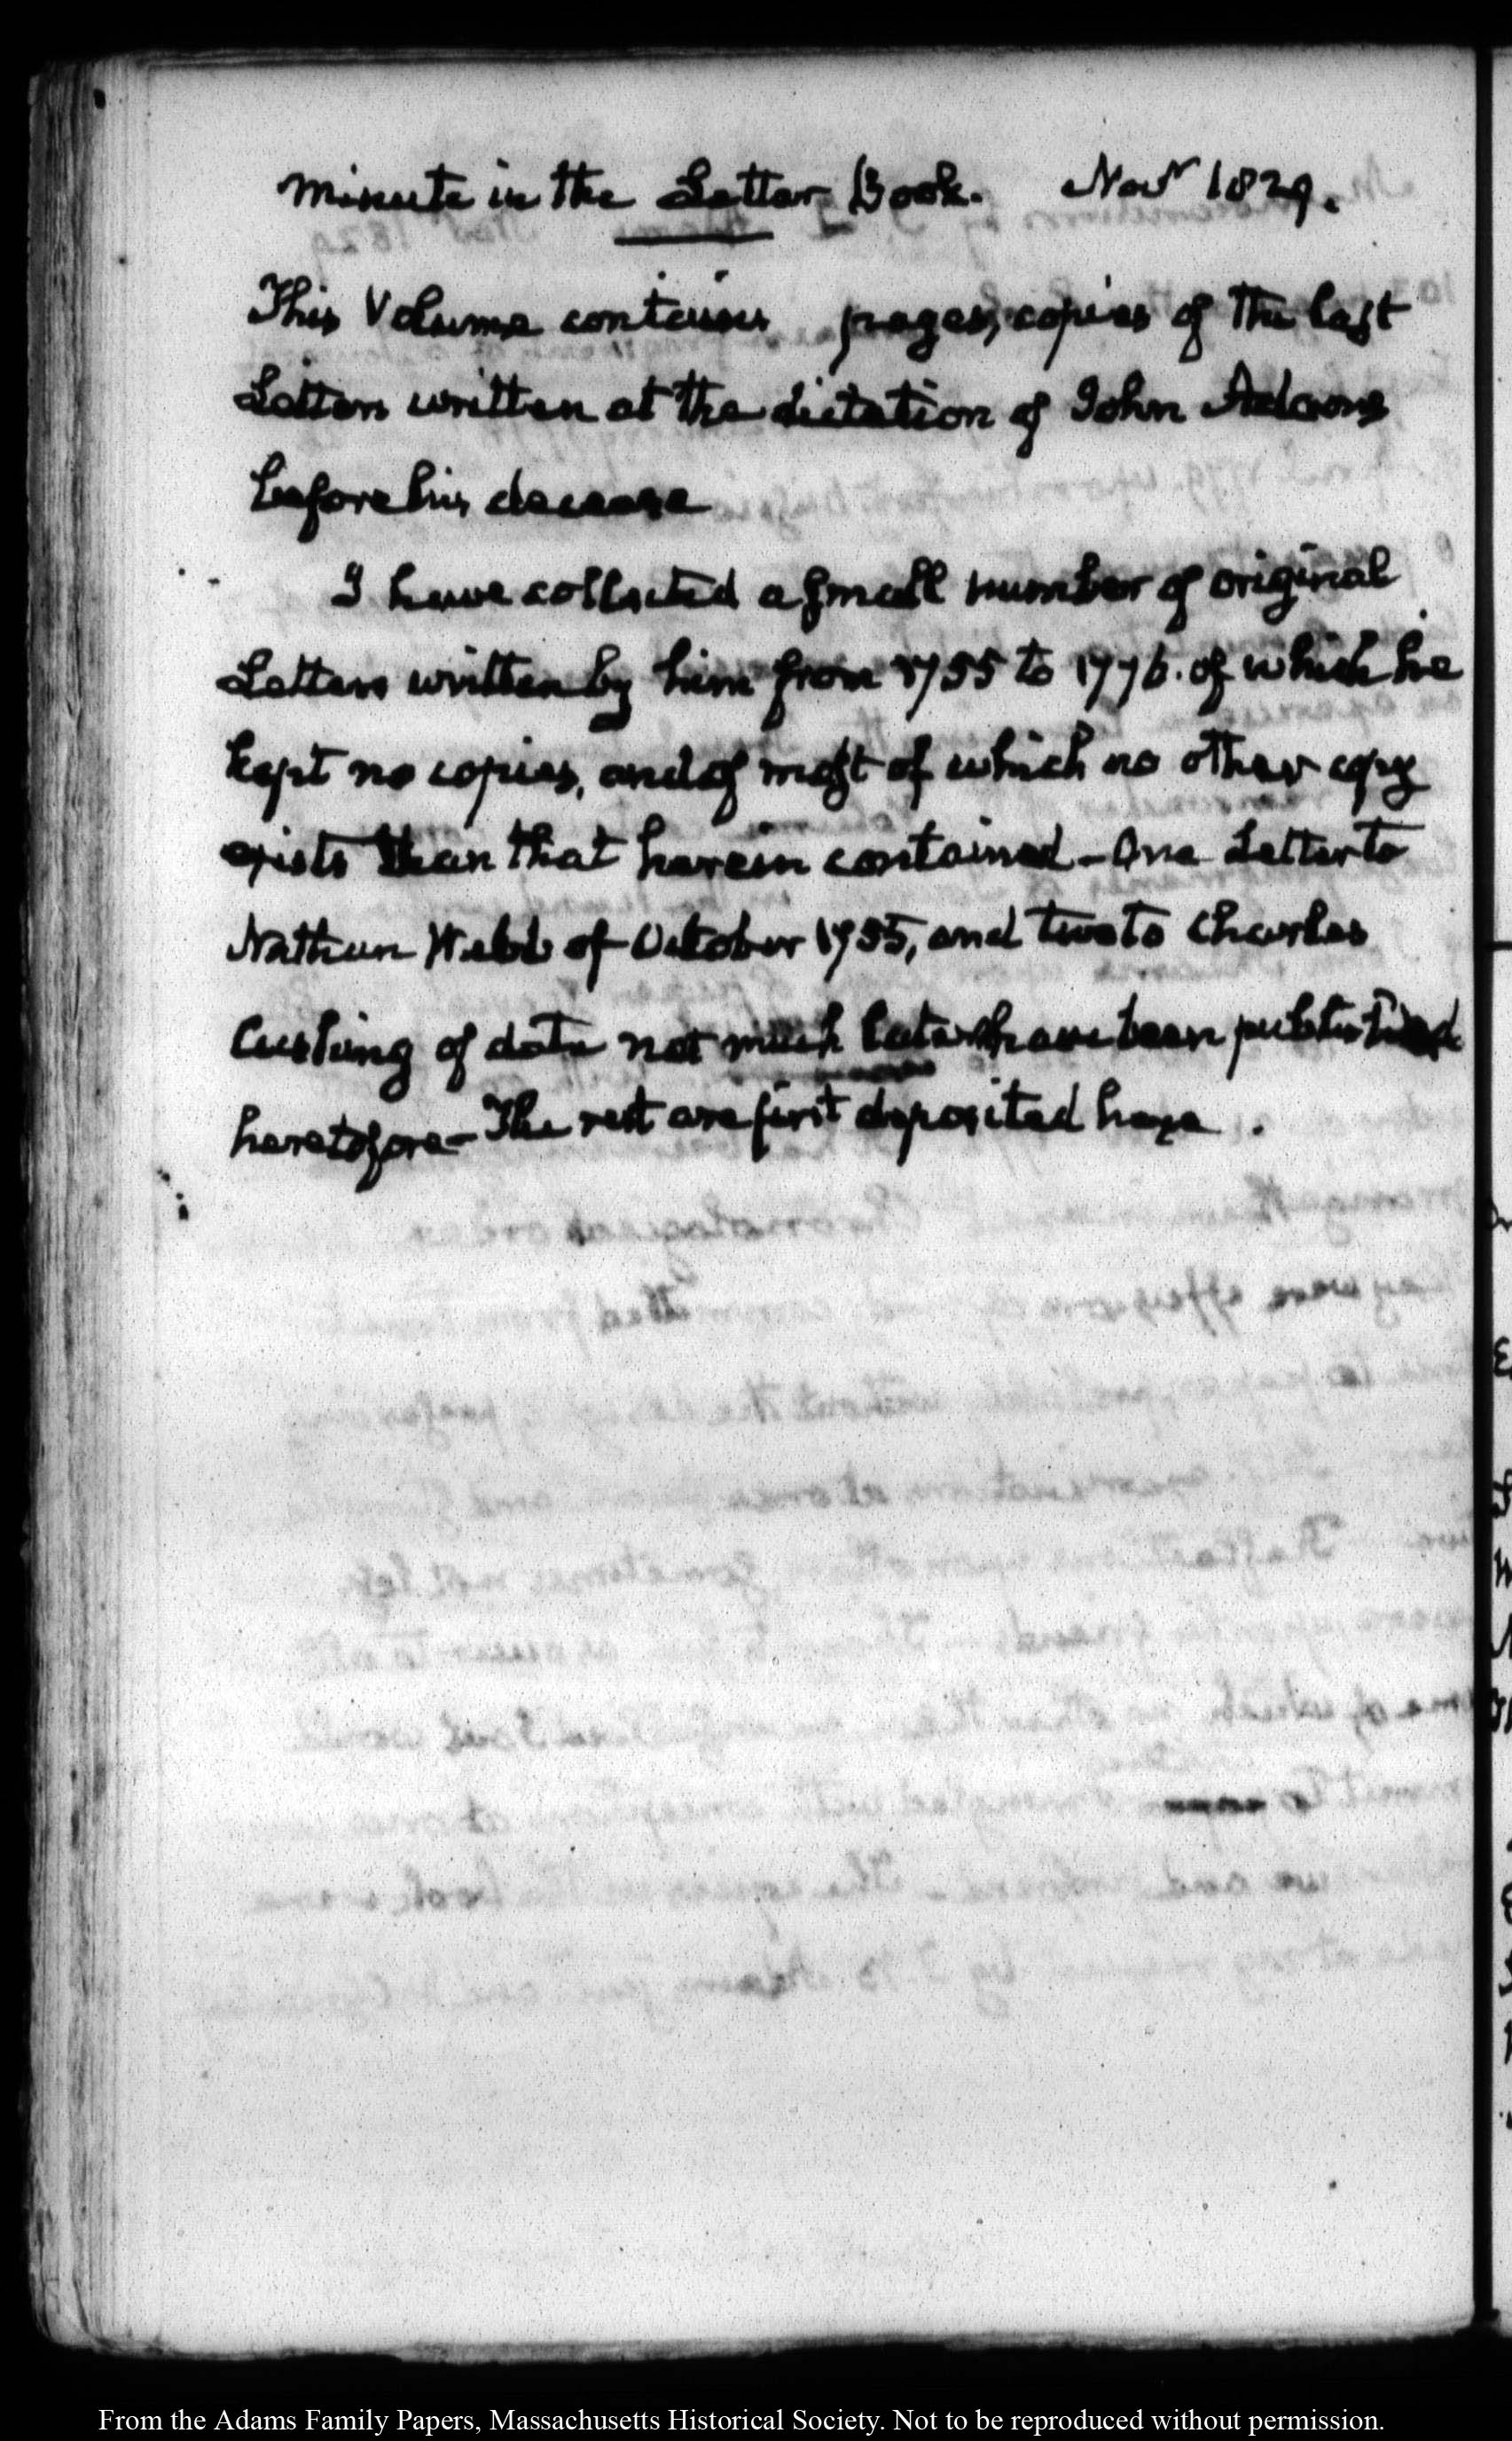 Minute in the Letter Book. Novr 1829.
This Volume contains pages, copies of the last
Letters written at the dictation of John Adams
before his decease
I have collected a small number of original
Letters written by him from 1755 to 1776. of which he
kept no copies, and of most of which no other copy
exists than that herein contained - One Letter to
Nathan Webb of October 1755, and two to Charles
Cushing of date not much later have been published
heretofore - The rest are first deposited here.
From the Adams Family Papers, Massachusetts Historical Society. Not to be reproduced without permission.